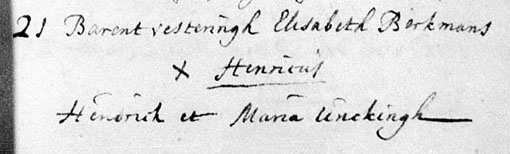 21 Barent vesteringh Elisabeth Berkmans
x Henricus
Hendrick et Maria Unckingh